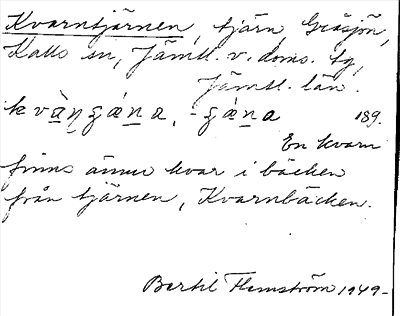 Kvarntjärnen, tjärn, Gråsjön,
Kalls sn, Jämtl. v. doms. tg,
Jämtl. län.
kvàŋgǽna, -gǽna 189.
En kvarn
finns ännu kvar i bäcken
från tjärnen, Kvarnbäcken.
Bertil Flemström 1949-